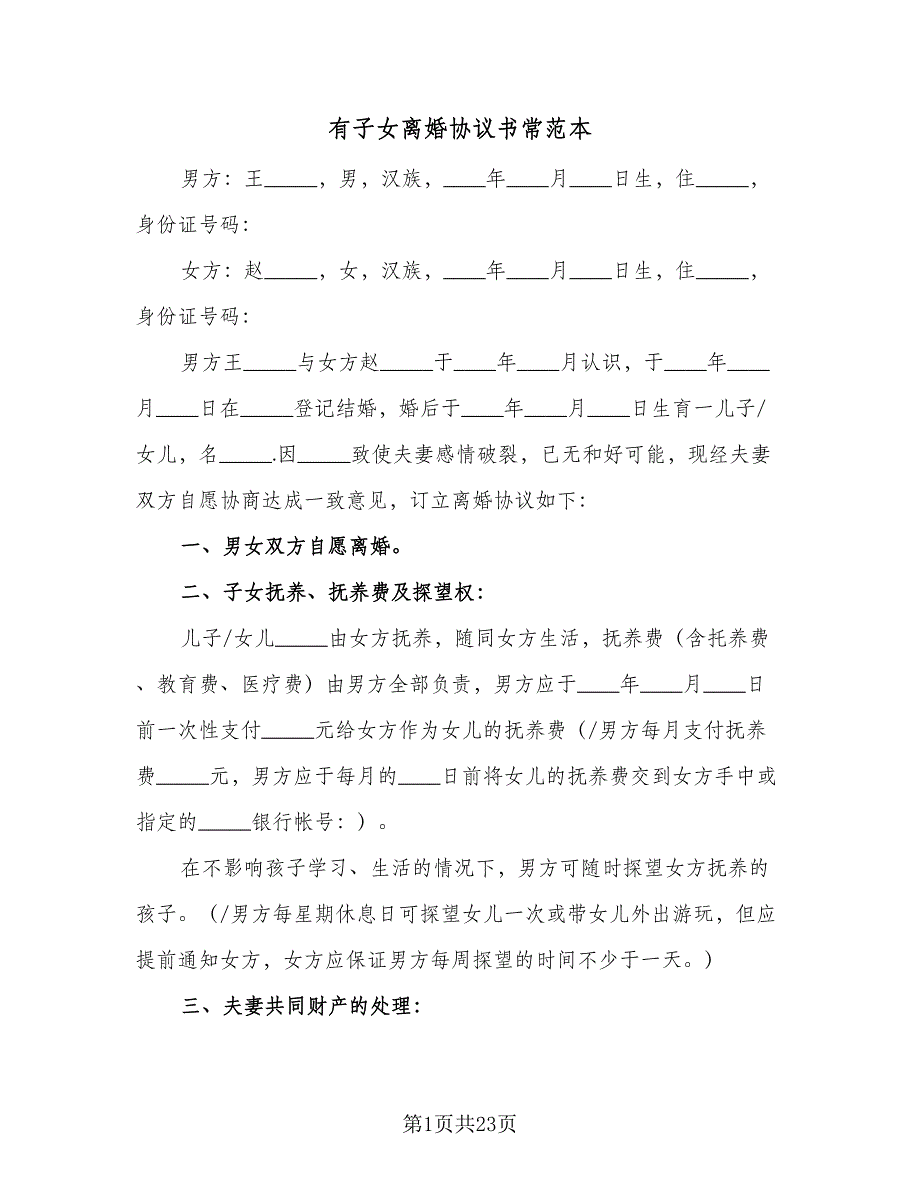 有子女离婚协议书常范本
男方：王_____，男，汉族，____年____月____日生，住_____，
身份证号码：
女方：赵_____，女，汉族，____年____月____日生，住_____，
身份证号码：
男方王_____与女方赵_____于____年____月认识，于____年____
月____日在_____登记结婚，婚后于____年____月____日生育一儿子/
女儿，名_____.因_____致使夫妻感情破裂，已无和好可能，现经夫妻
双方自愿协商达成一致意见，订立离婚协议如下：
一、男女双方自愿离婚。
二、子女抚养、抚养费及探望权：
儿子/女儿_____由女方抚养，随同女方生活，抚养费（含托养费
、教育费、医疗费）由男方全部负责，男方应于____年____月____日
前一次性支付_____元给女方作为女儿的抚养费（/男方每月支付抚养
费_____元，男方应于每月的____日前将女儿的抚养费交到女方手中或
指定的_____银行帐号：）。
在不影响孩子学习、生活的情况下，男方可随时探望女方抚养的
孩子。（/男方每星期休息日可探望女儿一次或带女儿外出游玩，但应
提前通知女方，女方应保证男方每周探望的时间不少于一天。）
三、夫妻共同财产的处理：
第1页共23页